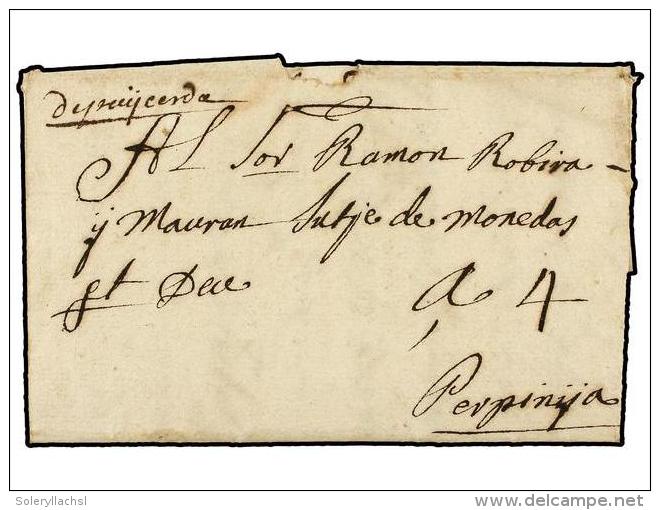 depuijcerda
Al Sor Ramon Robira
y Mauran Jutje de Monedas
gt Deu
a 4
Perpinija
Soleryllachsl
delcampe.net